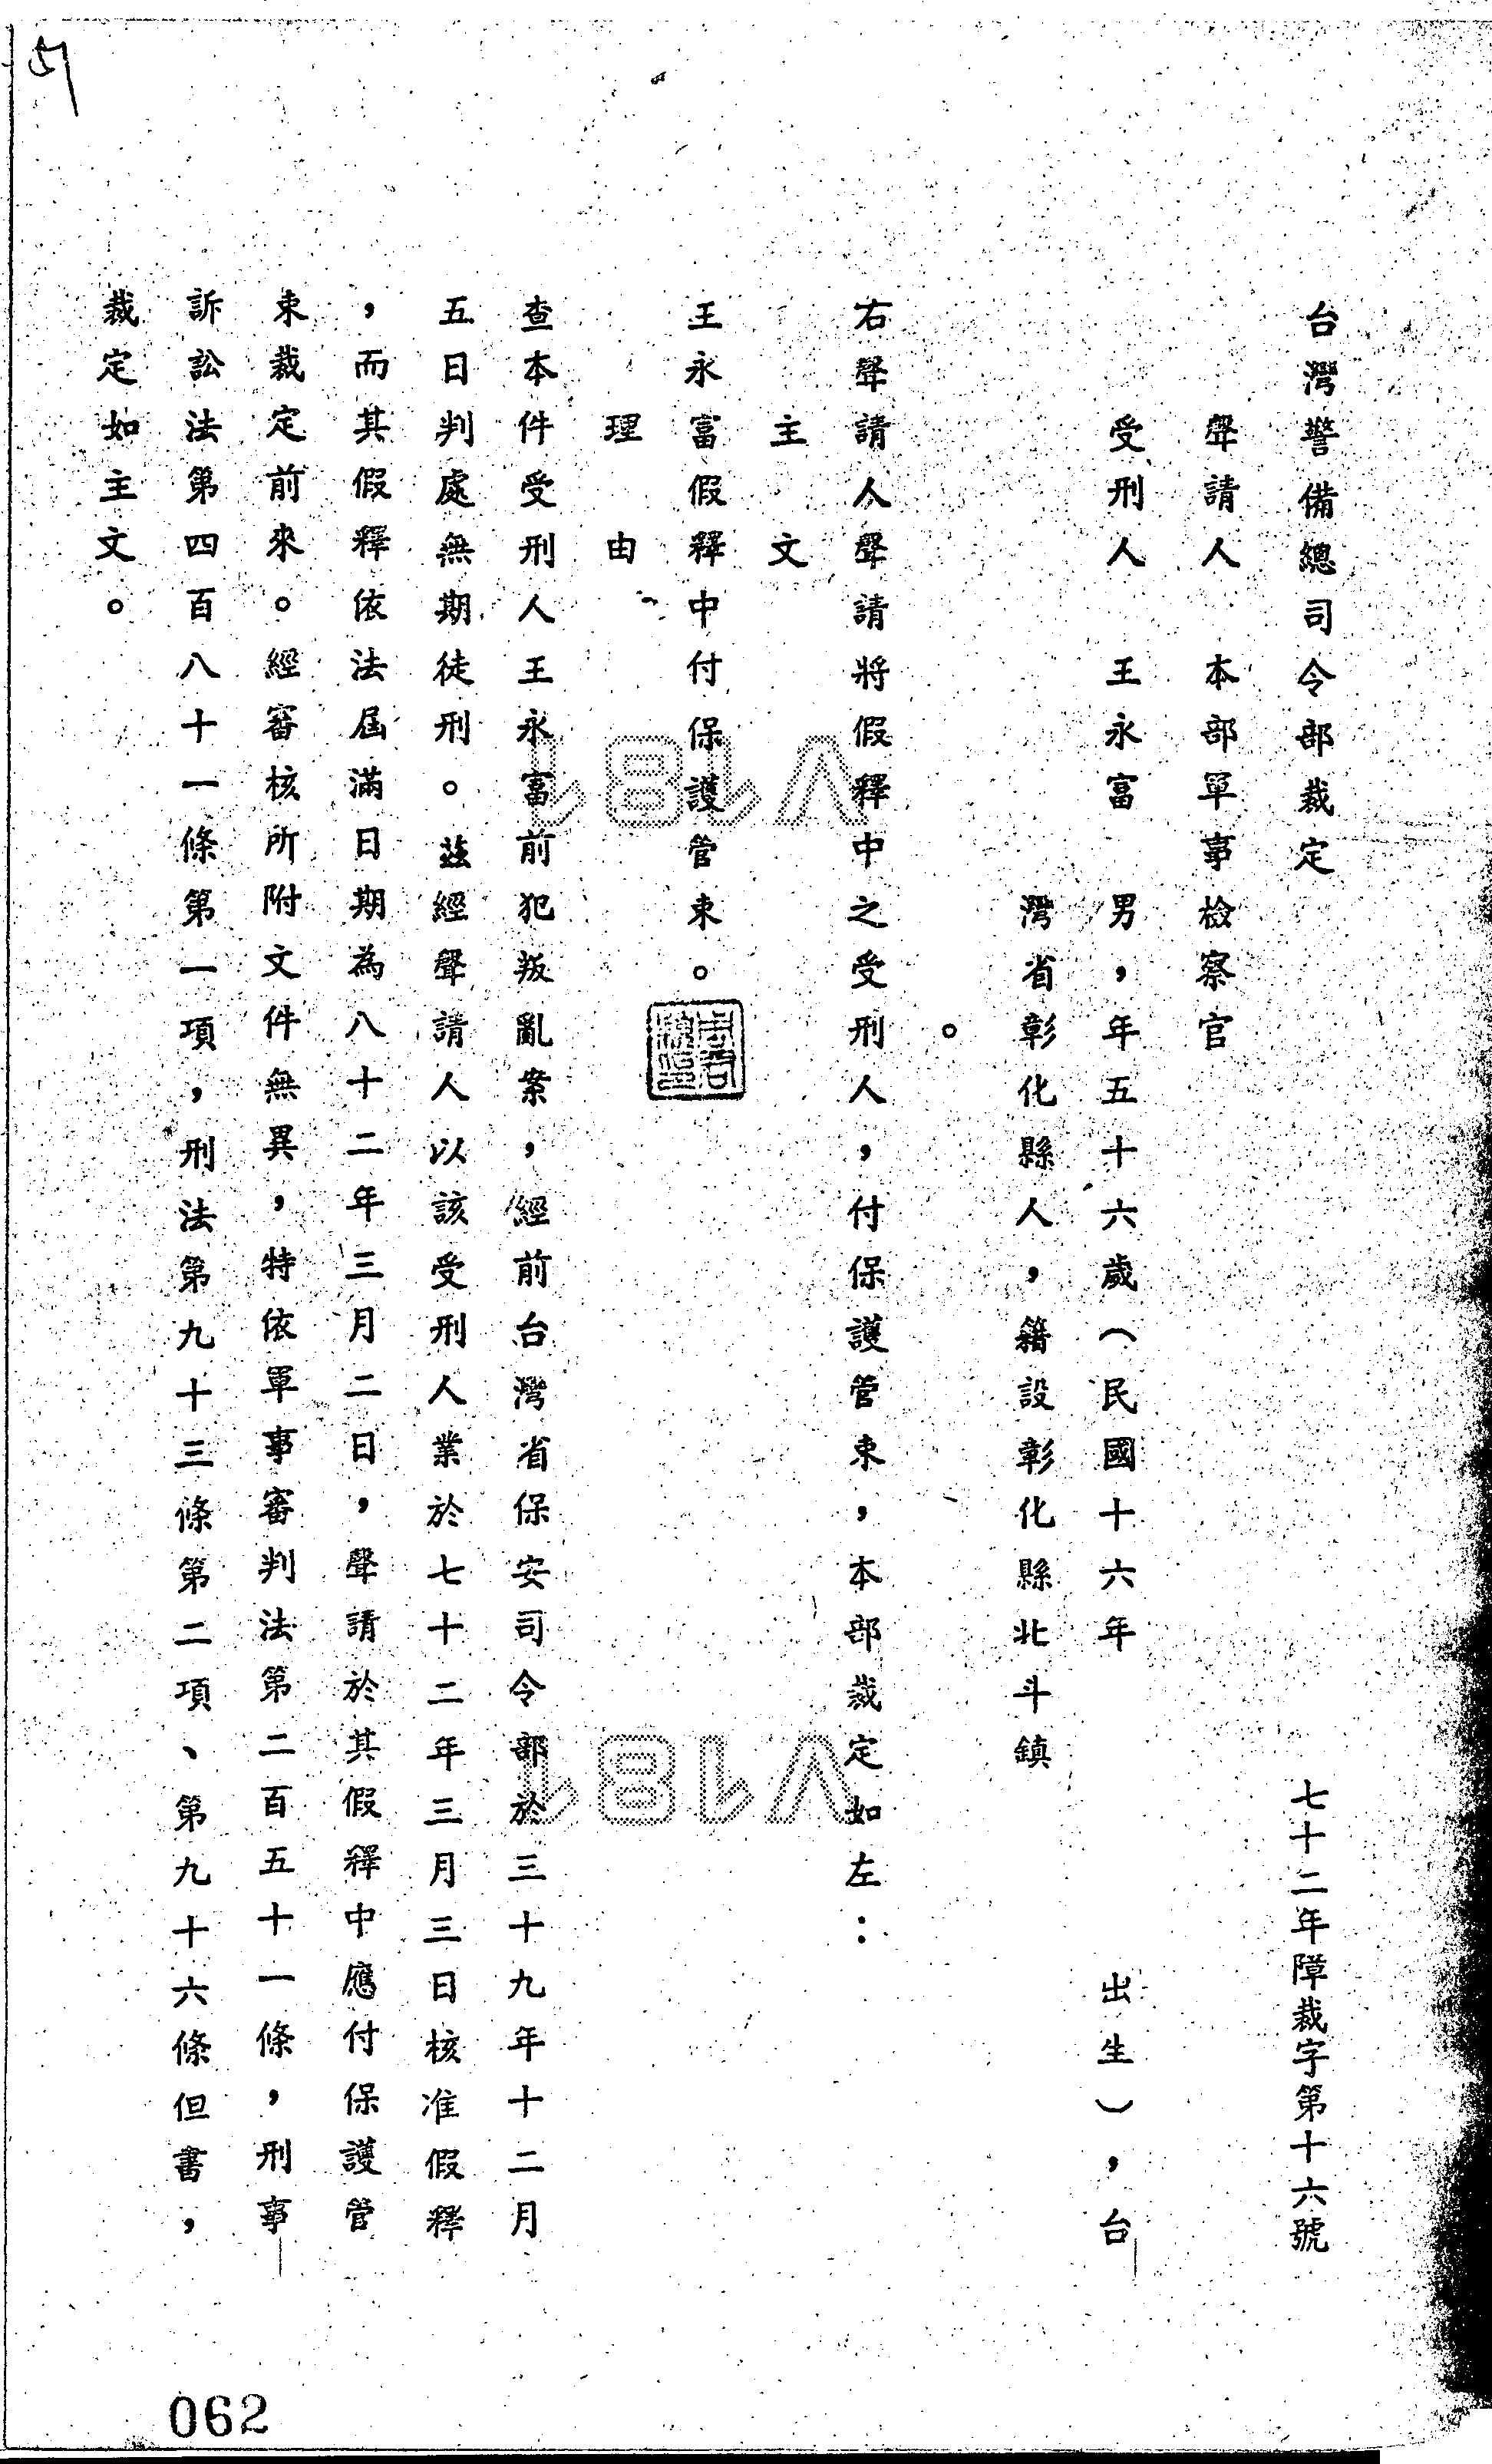 台灣警備總司令部裁定 七十二年障裁字第十六號
聲請人 本部軍事檢察官
受刑人 王永富 男，年五十六歲（民國十六年 出生），台
灣省彰化縣人，籍設彰化縣北斗鎮
。
右聲請人聲請將假釋中之受刑人，付保護管束，本部裁定如左：
主文
王永富假釋中付保護管束。
理由
查本件受刑人王永富前犯叛亂案，經前台灣省保安司令部於三十九年十二月
五日判處無期徒刑。茲經聲請人以該受刑人業於七十二年三月三日核准假釋
，而其假釋依法屆滿日期為八十二年三月二日，聲請於其假釋中應付保護管
束裁定前來。經審核所附文件無異，特依軍事審判法第二百五十一條，刑事
訴訟法第四百八十一條第一項，刑法第九十三條第二項、第九十六條但書，
裁定如主文。
V181
V181
57
062